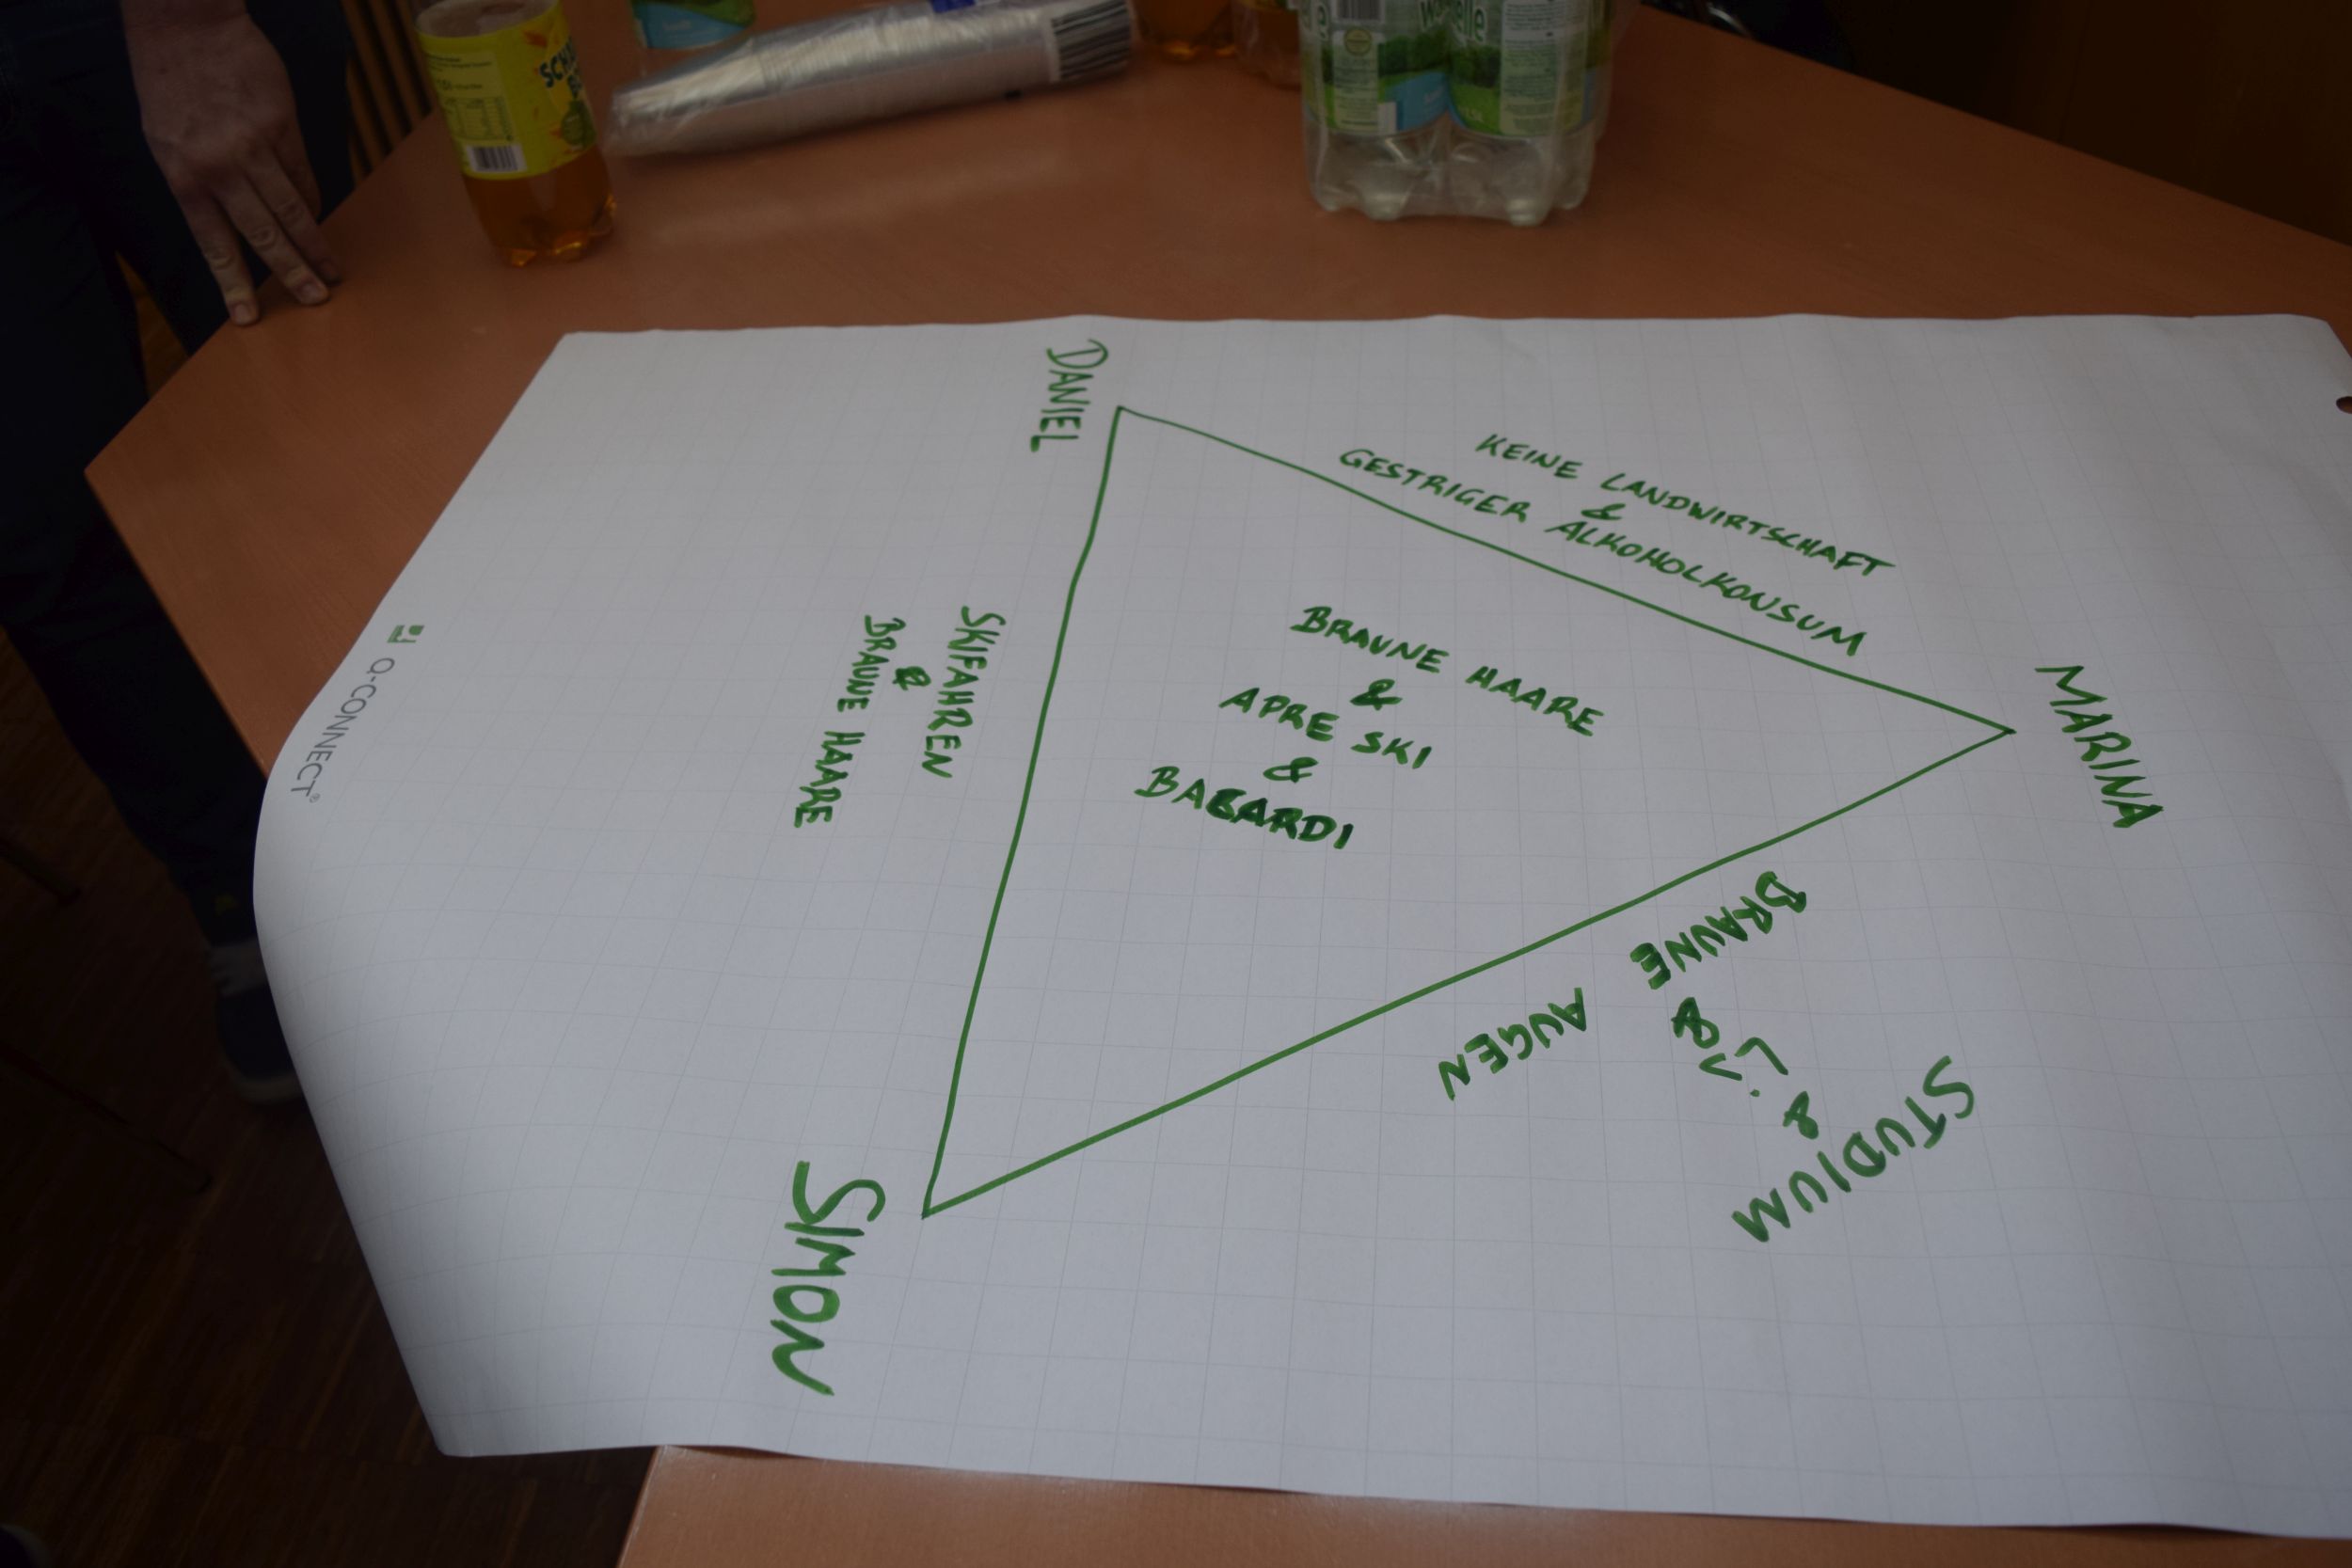 DANIEL
KEINE LANDWIRTSCHAFT
&
GESTRIGER ALKOHOLKONSUM
MARINA
BRAUNE HAARE
&
APRE SKI
&
BABARDI
SKIFAHREN
&
BRAUNE HAARE
BRAUNE
AUGEN
&
&
STUDIUM
SIMON
Q-CONNECT®